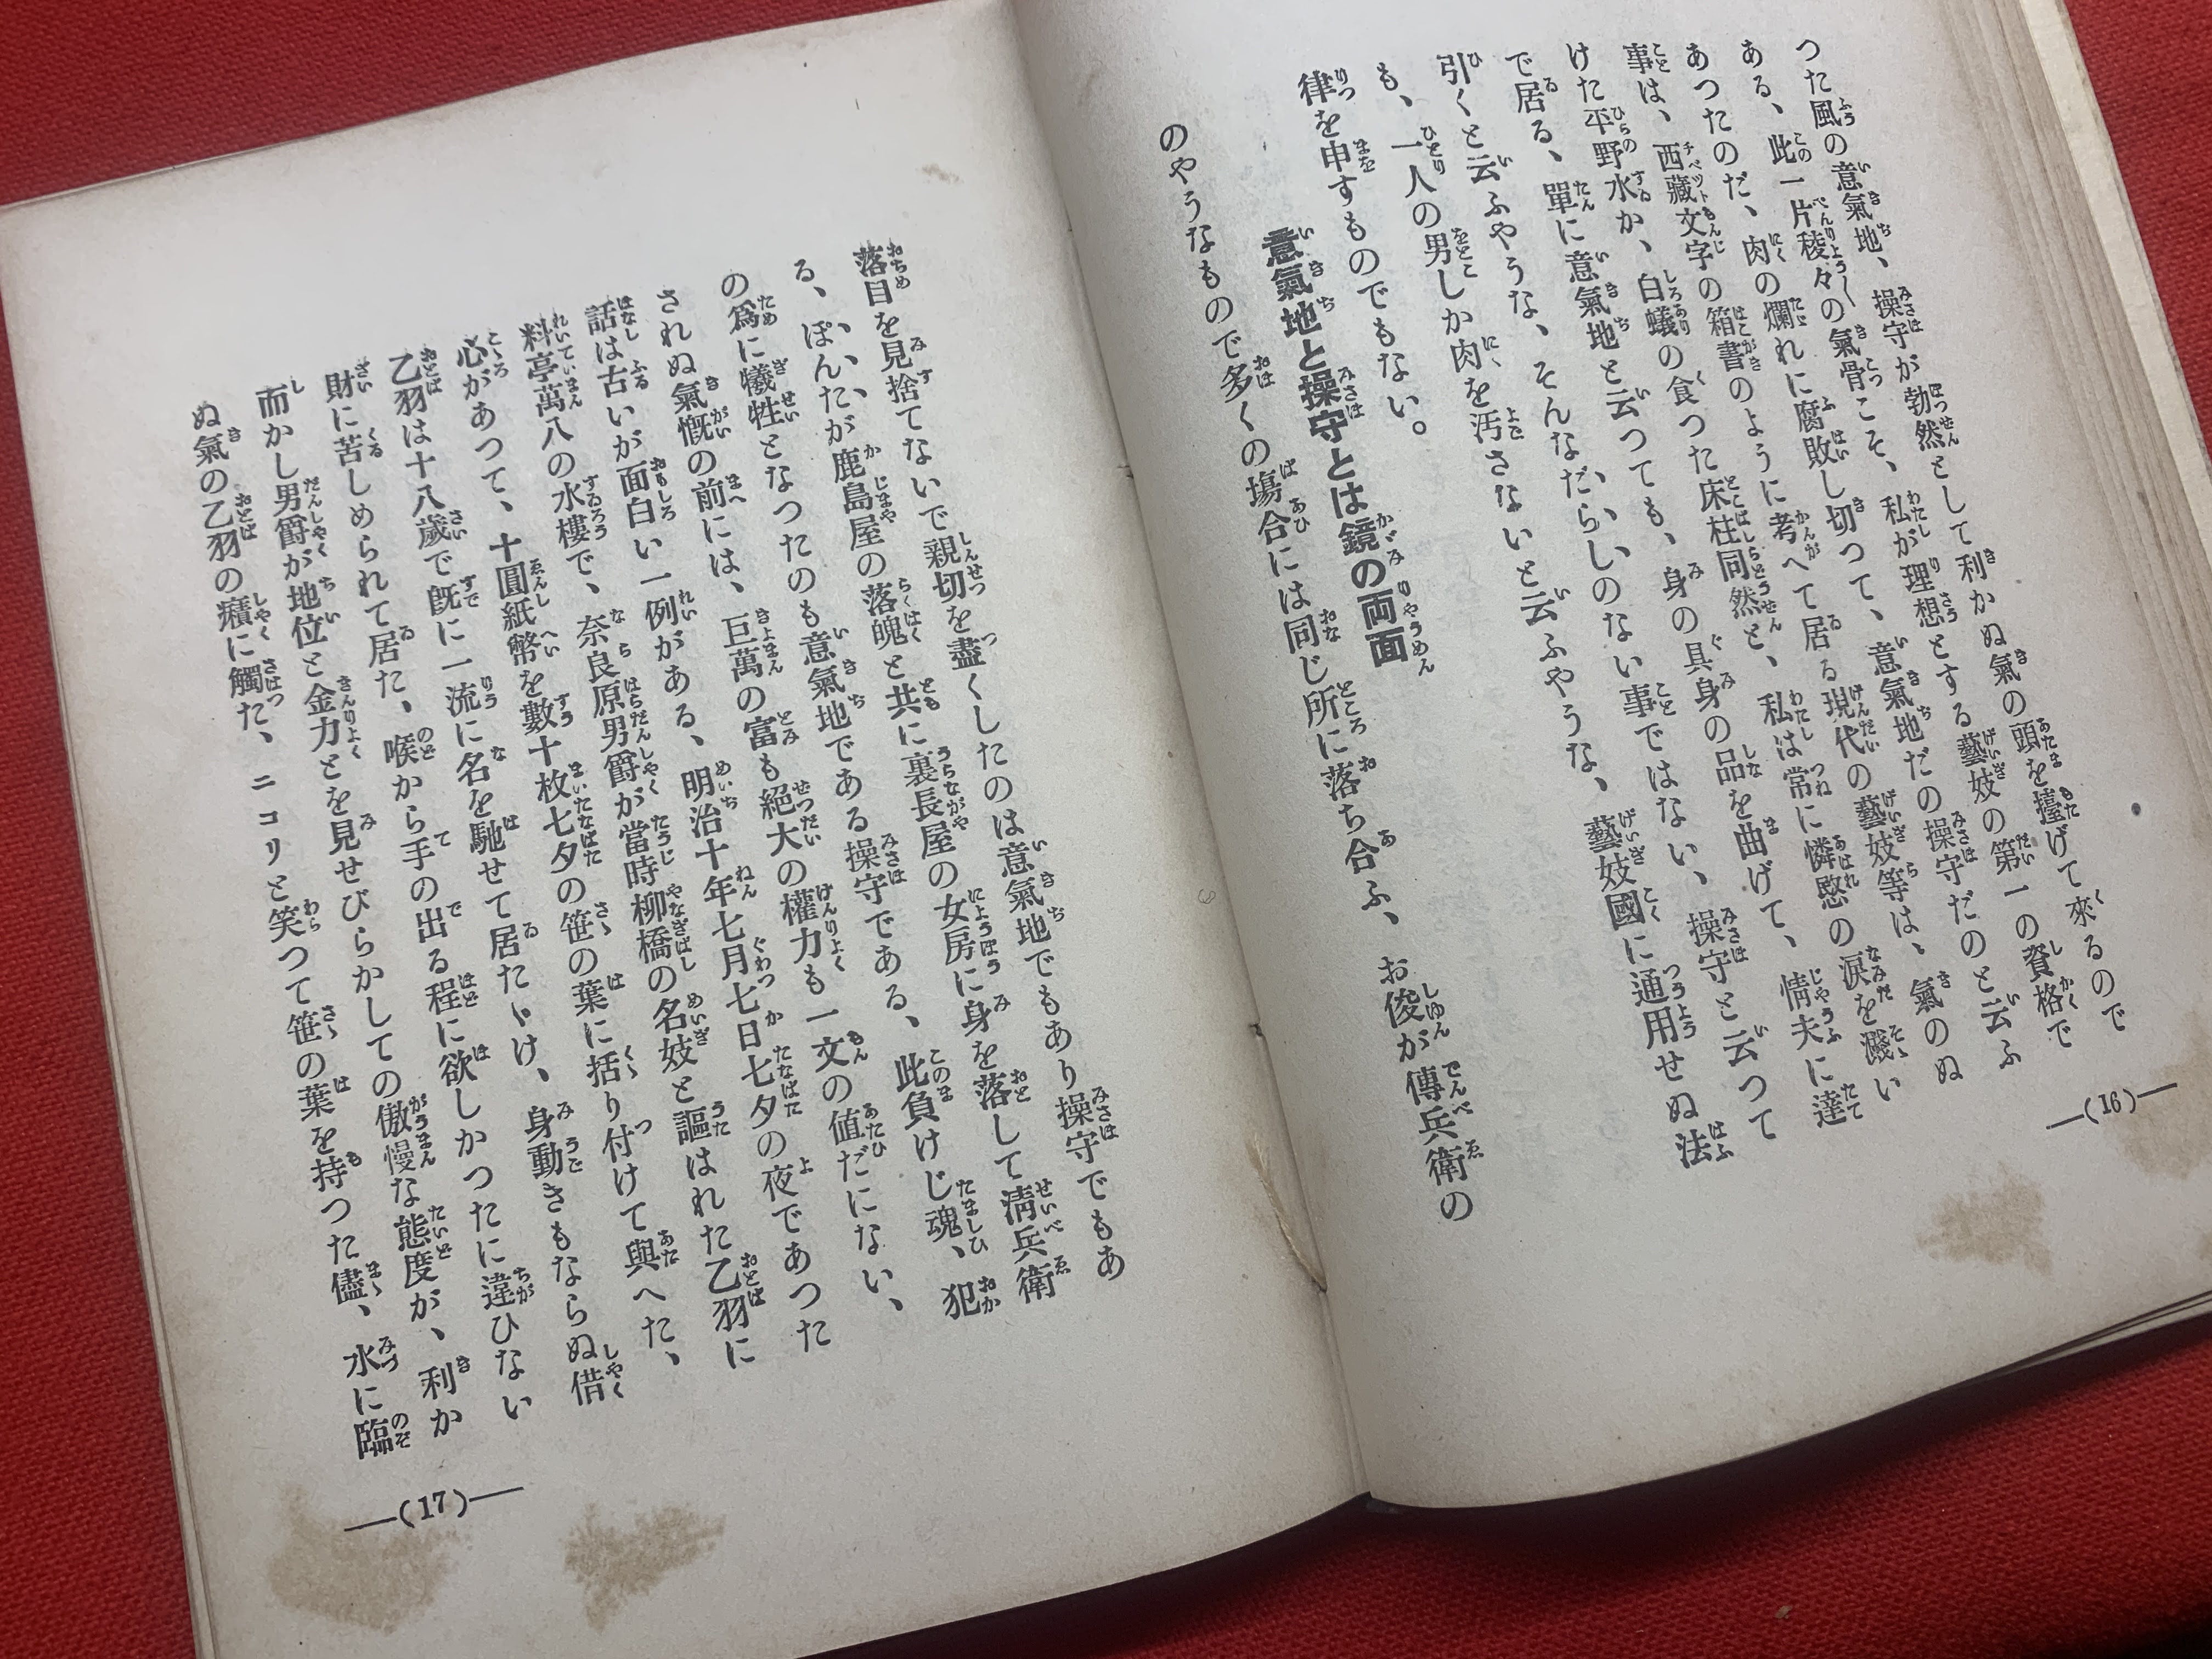 つた風の意氣地、操守が勃然として利かぬ氣の頭を擡げて來るので
ある、此一片稜々の氣骨こそ、私が理想とする藝妓の第一の資格で
あつたのだ、肉の爛れに腐敗し切つて、意氣地だの操守だのと云ふ
事は、西藏文字の箱書のように考へて居る現代の藝妓等は、氣のぬ
けた平野水か、白蟻の食つた床柱同然と、私は常に憐愍の涙を濺い
で居る、單に意氣地と云つても、身の具身の品を曲げて、情夫に達
引くと云ふやうな、そんなだらしのない事ではない、操守と云つて
も、一人の男しか肉を汚さないと云ふやうな、藝妓國に通用せぬ法
律を申すものでもない。
意氣地と操守とは鏡の両面
のやうなもので多くの塲合には同じ所に落ち合ふ、お俊が傳兵衛の
—(16)—
落目を見捨てないで親切を盡くしたのは意氣地でもあり操守でもあ
る、ぽんたが鹿島屋の落魄と共に裏長屋の女房に身を落して淸兵衛
の爲に犧牲となつたのも意氣地である操守である、此負けじ魂、犯
されぬ氣慨の前には、巨萬の富も絕大の權力も一文の値だにない、
話は古いが面白い一例がある、明治十年七月七日七夕の夜であつた
料亭萬八の水樓で、奈良原男爵が當時柳橋の名妓と謳はれた乙羽に
心があつて、十圓紙幣を數十枚七夕の笹の葉に括り付けて與へた、
乙羽は十八歲で既に一流に名を馳せて居たゞけ、身動きもならぬ借
財に苦しめられて居た、喉から手の出る程に欲しかつたに違ひない
而かし男爵が地位と金力とを見せびらかしての傲慢な態度が、利か
ぬ氣の乙羽の癪に觸た、ニコリと笑つて笹の葉を持つた儘、水に臨
—(17)—